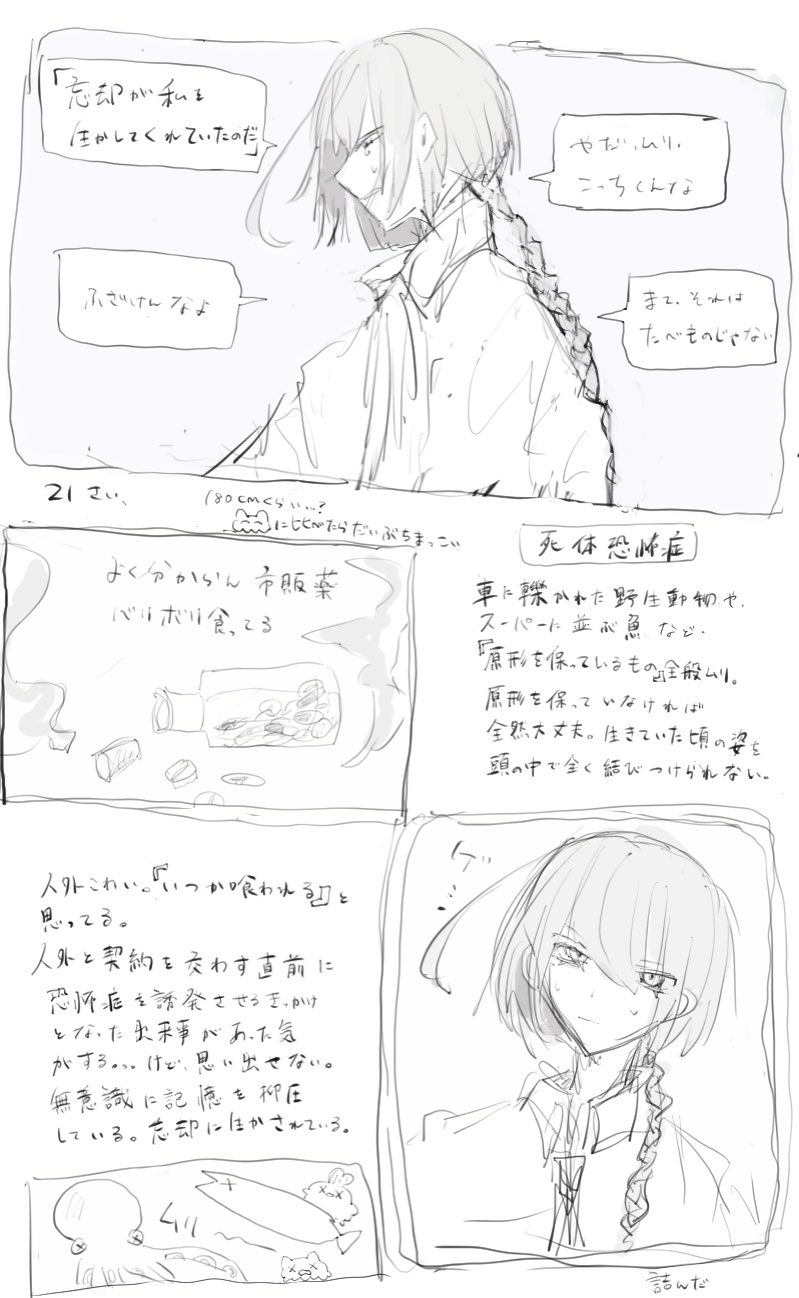 「忘却が私を
生かしてくれていたのだ」
やだ、ムリ、
こっちくんな
ふざけんなよ
まて、それは
たべものじゃない
21さい、
180cmくらい…?
に比べたらだいぶちまっこい
よく分からん市販薬
バリボリ食ってる
死体恐怖症
車に轢かれた野生動物や、
スーパーに並ぶ魚など、
『原形を保っているもの』全般ムリ。
原形を保っていなければ
全然大丈夫。生きていた頃の姿を
頭の中で全く結びつけられない。
人外こわい。『いつか喰われる』と
思ってる。
人外と契約を交わす直前に
恐怖症を誘発させるきっかけ
となった出来事があった気
がする...けど、思い出せない。
無意識に記憶を抑圧
している。忘却に生かされている。
ゲ…
ムリ
詰んだ